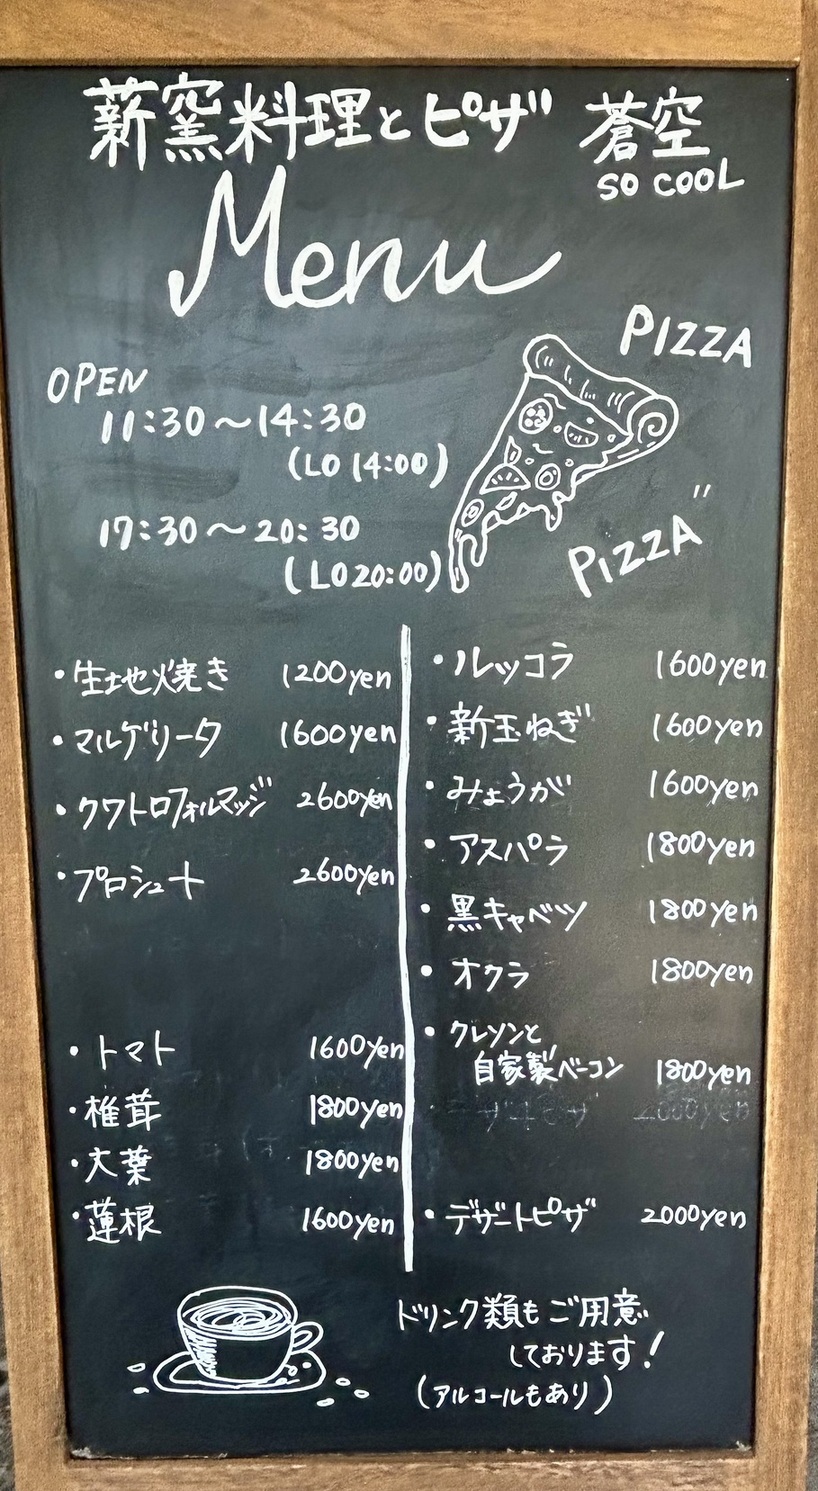 薪窯料理とピザ 蒼空
SO COOL
Menu
PIZZA
OPEN
11:30～14:30
(LO 14:00)
17:30～20:30
(LO 20:00)
PIZZA"
・生地焼き 1200yen
・マルゲリータ 1600yen
・クワトロフォルマッジ 2600yen
・プロシュート 2600yen
・トマト 1600yen
・椎茸 1800yen
・大葉 1800yen
・蓮根 1600yen
・ルッコラ 1600yen
・新玉ねぎ 1600yen
・みょうが 1600yen
・アスパラ 1800yen
・黒キャベツ 1800yen
・オクラ 1800yen
・クレソンと
自家製ベーコン 1800yen
・デザートピザ 2000yen
ドリンク類もご用意
しております!
(アルコールもあり)